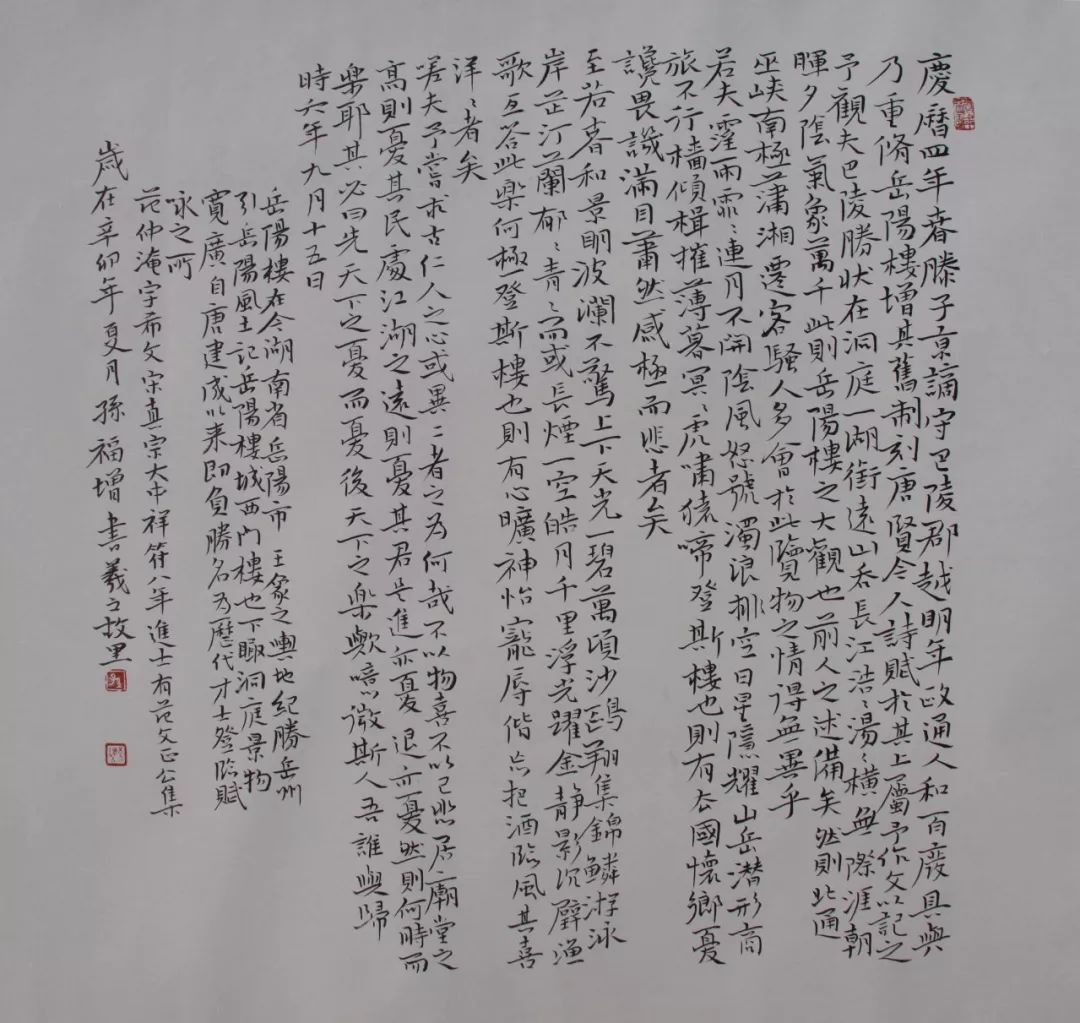 慶曆四年春滕子京謫守巴陵郡越明年政通人和百廢具興
乃重脩岳陽樓增其舊制刻唐賢今人詩賦於其上屬予作文以記之
予觀夫巴陵勝狀在洞庭一湖銜遠山吞長江浩〻湯〻橫無際涯朝
暉夕陰氣象萬千此則岳陽樓之大觀也前人之述備矣然則北通
巫峽南極瀟湘遷客騷人多會於此覽物之情得無異乎
若夫霪雨霏〻連月不開陰風怒號濁浪排空日星隱耀山岳潛形商
旅不行檣傾楫摧薄暮冥〻虎嘯猿啼登斯樓也則有去國懷鄉憂
讒畏譏滿目蕭然感極而悲者矣
至若春和景明波瀾不驚上下天光一碧萬頃沙鷗翔集錦鱗游泳
岸芷汀蘭郁〻青〻而或長煙一空皓月千里浮光躍金靜影沉璧漁
歌互答此樂何極登斯樓也則有心曠神怡寵辱偕忘把酒臨風其喜
洋〻者矣
嗟夫予嘗求古仁人之心或異二者之為何哉不以物喜不以己悲居廟堂之
高則憂其民處江湖之遠則憂其君是進亦憂退亦憂然則何時而
樂耶其必曰先天下之憂而憂後天下之樂歟噫微斯人吾誰與歸
時六年九月十五日
岳陽樓在今湖南省岳陽市 王象之輿地紀勝岳州
引岳陽風土記岳陽樓城西門樓也下瞰洞庭景物
寬廣自唐建成以來即負勝名為歷代才士登臨賦
咏之所
范仲淹字希文宋真宗大中祥符八年進士有范文正公集
歲在辛卯年夏月孫福增書羲之故里